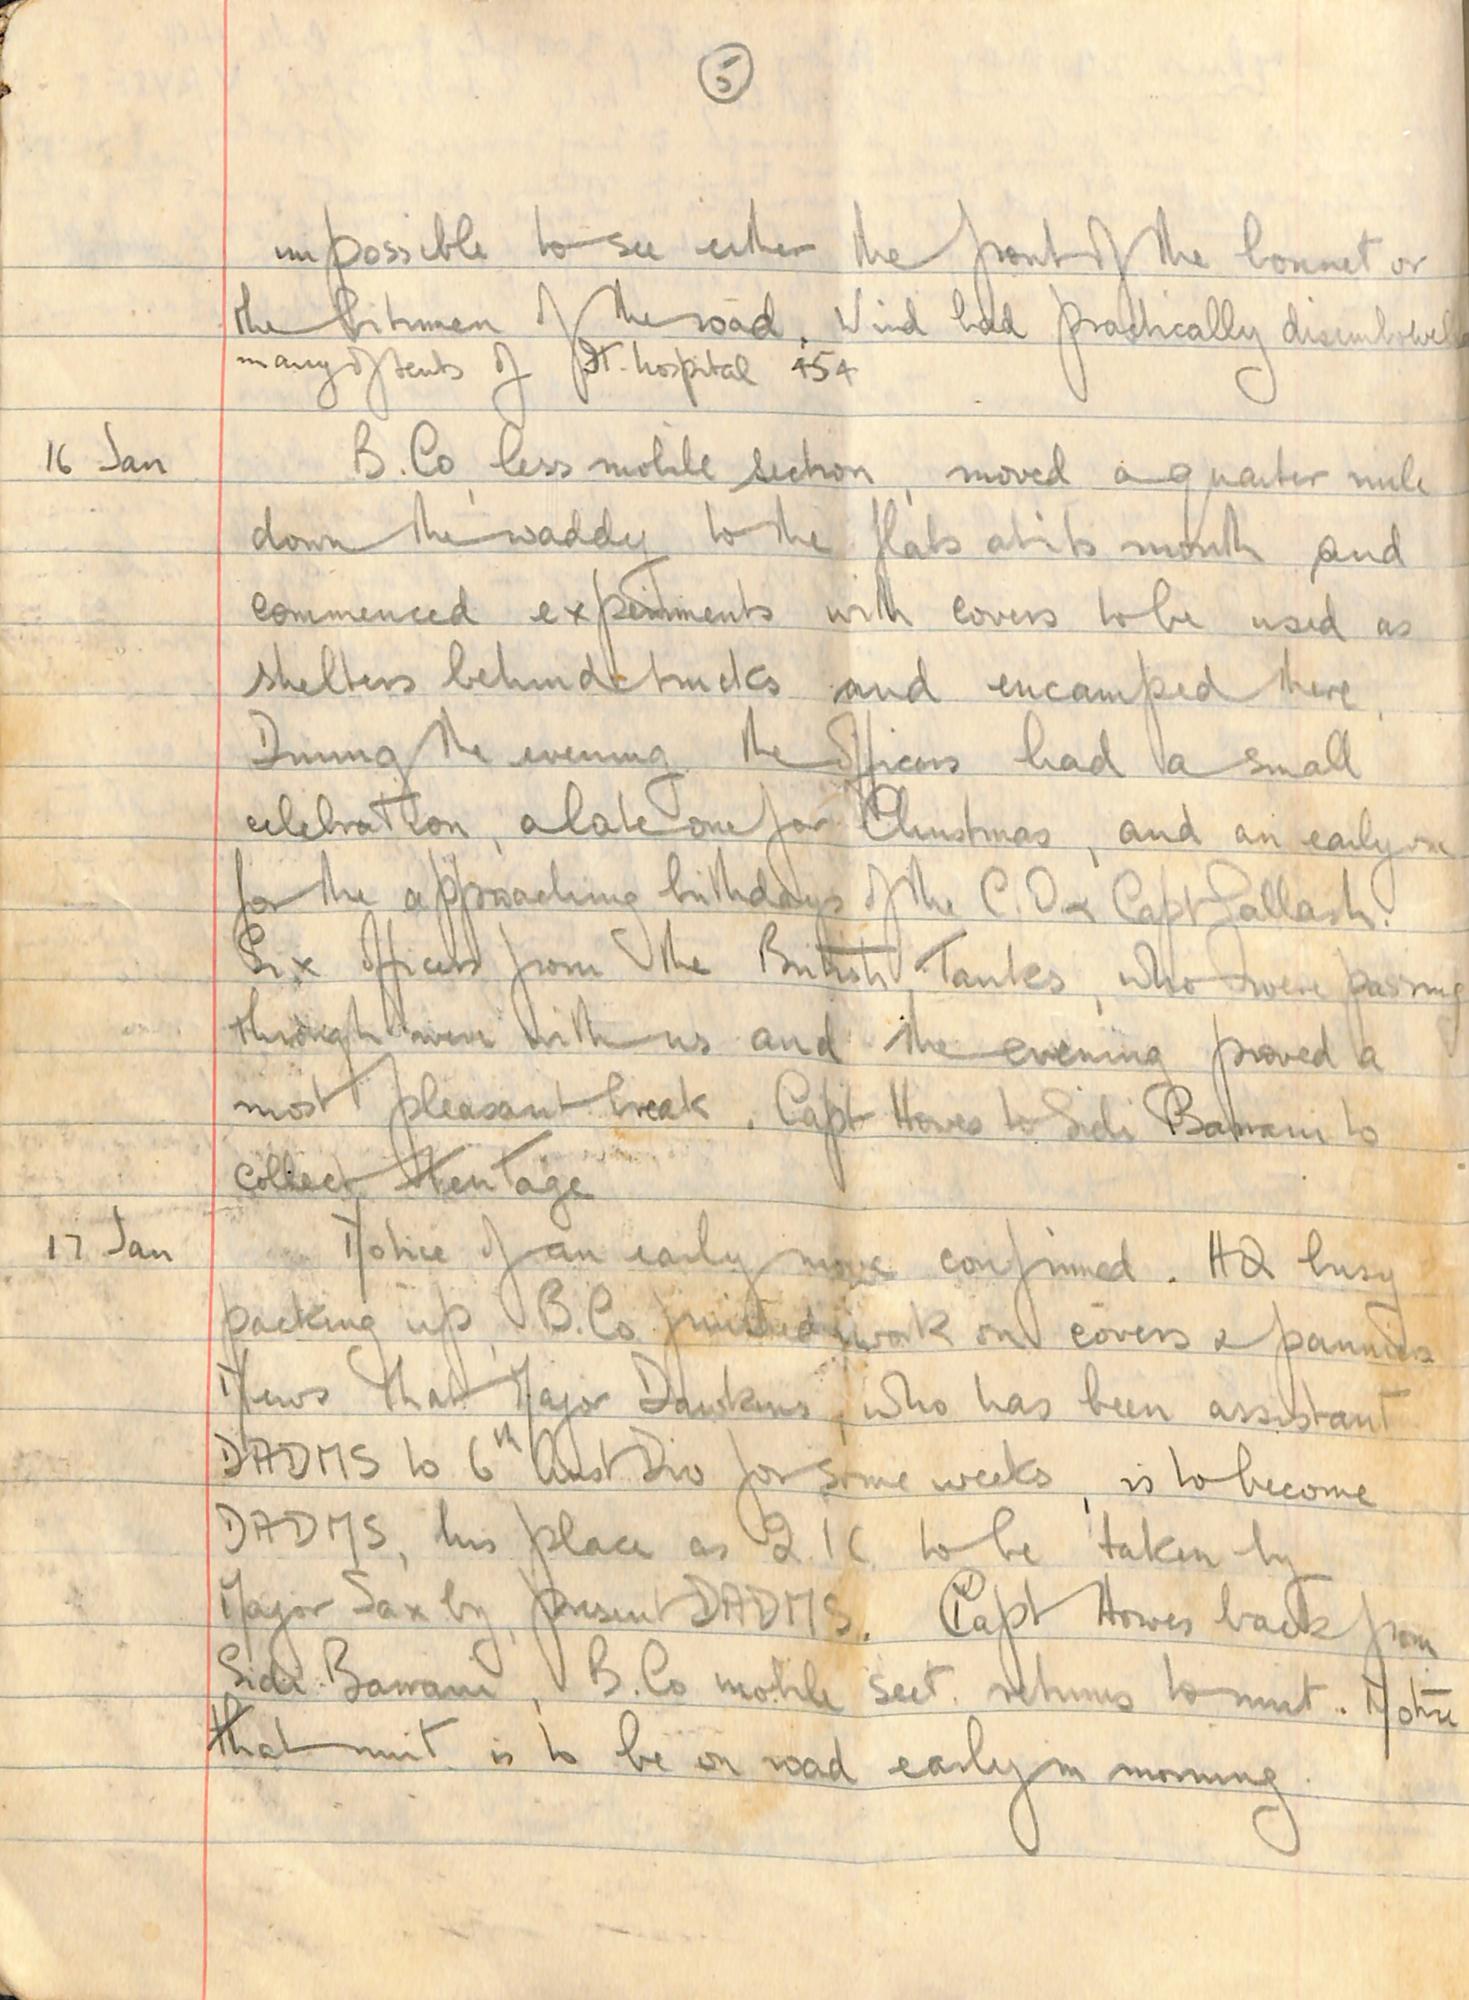 5
impossible to see either the front of the bonnet or
the bitumen of the road. Wind had practically disembowelled
many of tents of It. hospital 454
16 Jan B.Co, less mobile section, moved a quarter mile
down the waddy to the flats at its mouth and
commenced experiments with covers to be used as
shelters behind trucks and encamped there.
During the evening the officers had a small
celebration, a late one for Christmas, and an early one
for the approaching birthdays of the C.O & Capt Gallash.
Six officers from the British Tanks, who were passing
through were with us and the evening proved a
most pleasant break. Capt Howes to Sidi Barrani to
collect tentage
17 Jan Notice of an early move confirmed. HQ busy
packing up, B.Co finished work on covers & panniers
News that Major Dawkins, who has been assistant
DADMS to 6th Aust Div for some weeks, is to become
DADMS, his place as 2 IC to be taken by
Major Saxby, present DADMS. Capt Howes back from
Sidi Barrani, B.Co mobile sect. returns to unit. Notice
that unit is to be on road early in morning.